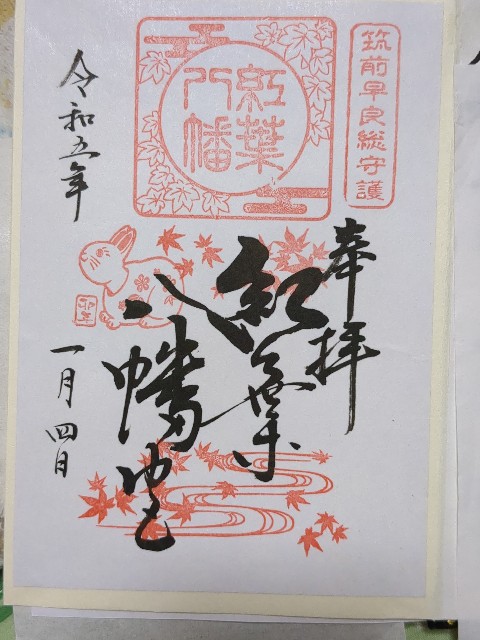 筑前早良総守護
奉拝
紅葉八幡
紅葉
八幡宮
卯年
令和五年
一月四日